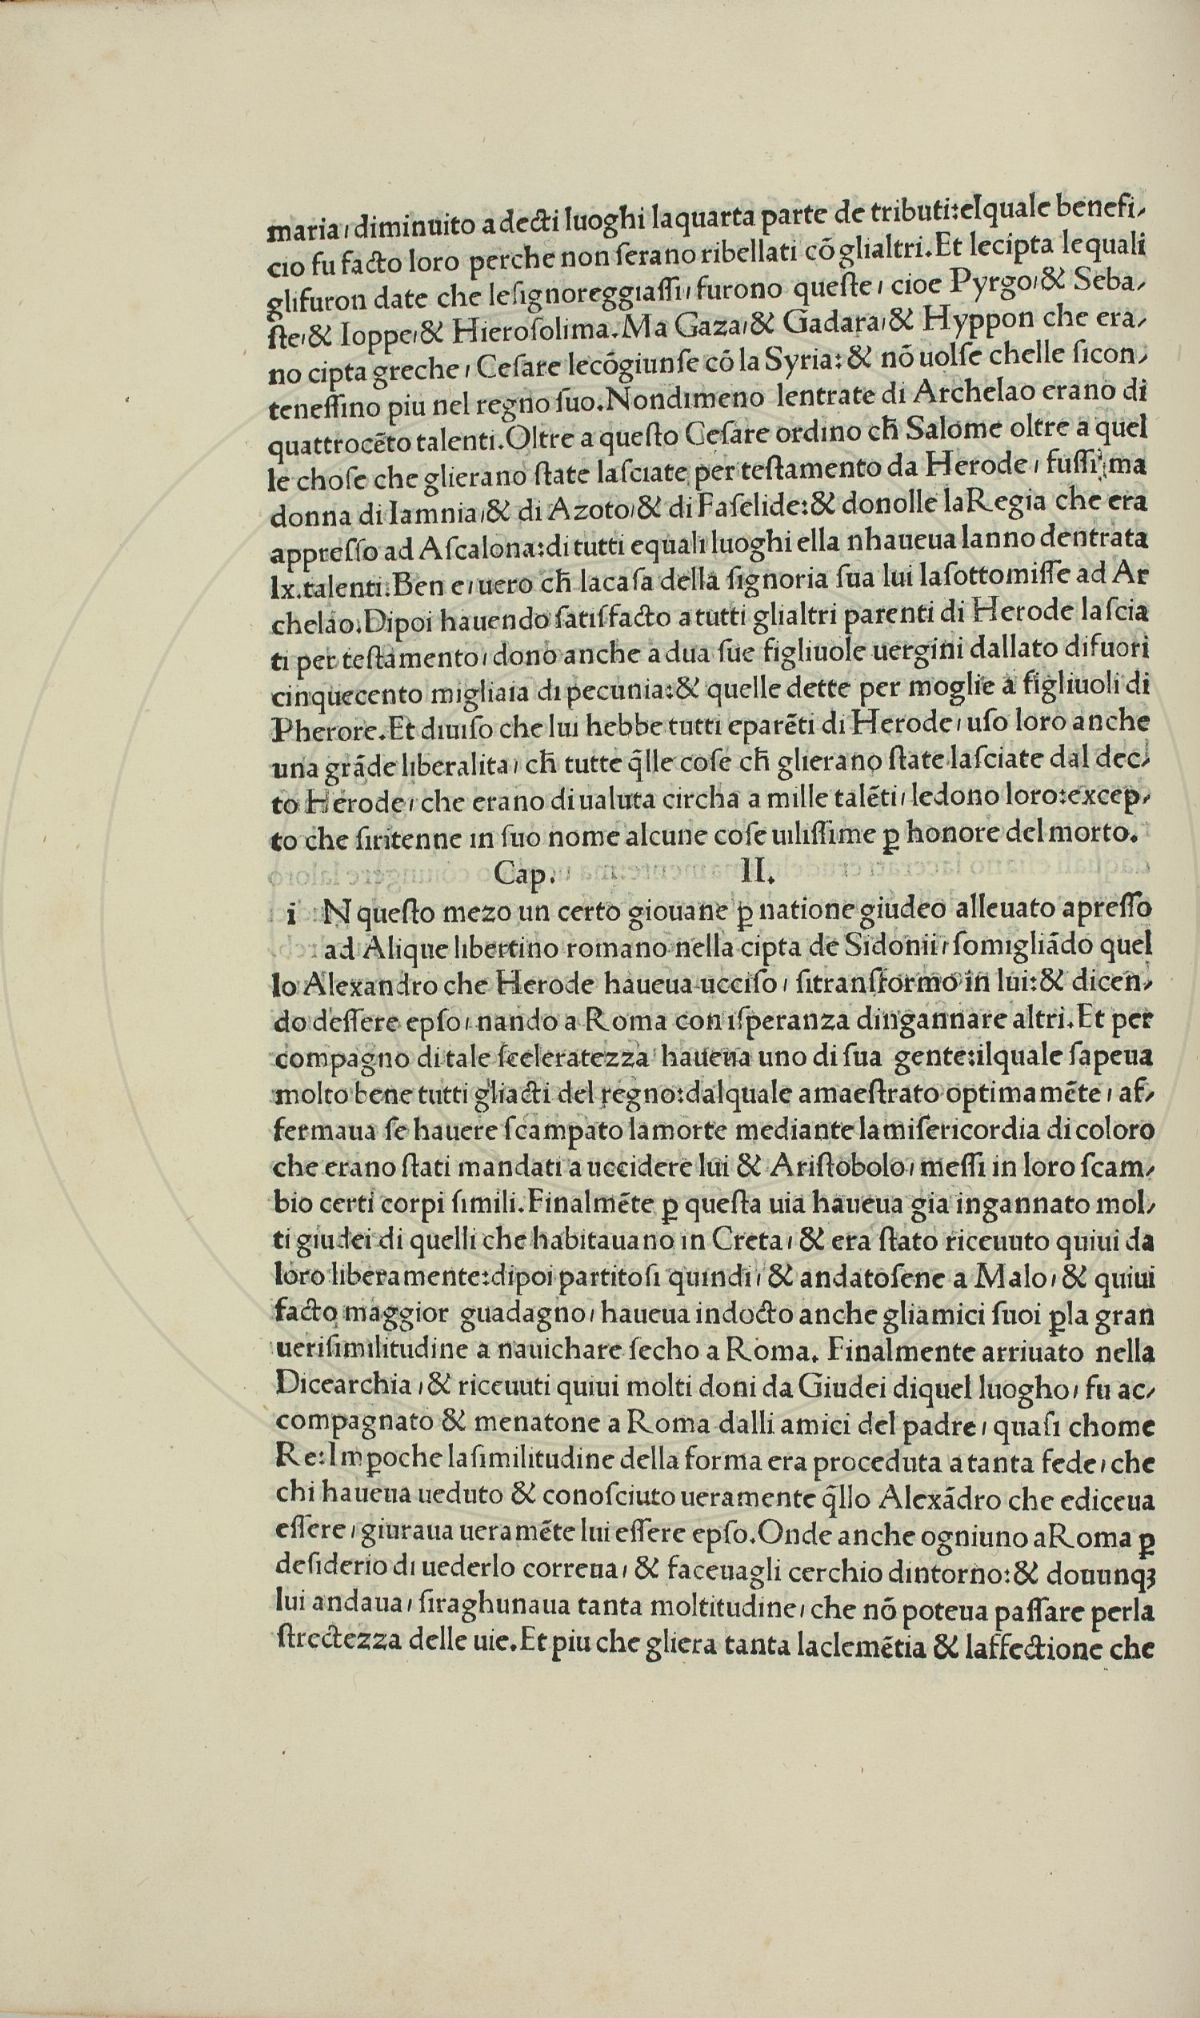 maria, diminuito a decti luoghi laquarta parte de tributi:elquale benefi-
cio fu facto loro perche non ſerano ribellati cõ glialtri.Et lecipta lequali
glifuron date che leſignoreggiaſſi, furono queſte, cioe Pyrgo,& Seba-
ſte,& Ioppe,& Hieroſolima.Ma Gaza,& Gadara,& Hyppon che era-
no cipta greche, Ceſare lecõgiunſe cõ la Syria:& nõ uolſe chelle ſicon-
teneſſino piu nel regno ſuo.Nondimeno lentrate di Archelao erano di
quattrocẽto talenti.Oltre a queſto Ceſare ordino cħ Salome oltre a quel
le choſe che glierano ſtate laſciate per teſtamento da Herode, fuſſi ma
donna di Iamnia,& di Azoto,& di Faſelide:& donolle laRegia che era
appreſſo ad Aſcalona:di tutti equali luoghi ella nhaueua lanno dentrata
lx.talenti.Ben e, uero cħ lacaſa della ſignoria ſua lui laſottomiſſe ad Ar
chelao.Dipoi hauendo ſatiſfacto a tutti glialtri parenti di Herode laſcia
ti per teſtamento, dono anche a dua ſue figliuole uergini dallato difuori
cinquecento migliaia di pecunia:& quelle dette per moglie a figliuoli di
Pherore.Et diuiſo che lui hebbe tutti eparẽti di Herode, uſo loro anche
una grãde liberalita, cħ tutte q̃lle coſe cħ glierano ſtate laſciate dal dec-
to Herode, che erano di ualuta circha a mille talẽti, ledono loro:excep-
to che ſiritenne in ſuo nome alcune coſe uiliſſime ꝑ honore del morto.
Cap. II.
i N queſto mezo un certo giouane ꝑ natione giudeo alleuato apreſſo
ad Alique libertino romano nella cipta de Sidonii, ſomigliãdo quel
lo Alexandro che Herode haueua ucciſo, ſitranſformo in lui:& dicen-
do deſſere epſo, nando a Roma con iſperanza dingannare altri.Et per
compagno di tale ſceleratezza haueua uno di ſua gente:ilquale ſapeua
molto bene tutti gliacti del regno:dalquale amaeſtrato optimamẽte, af-
fermaua ſe hauere ſcampato lamorte mediante lamiſericordia di coloro
che erano ſtati mandati a uccidere lui & Ariſtobolo, meſſi in loro ſcam-
bio certi corpi ſimili.Finalmẽte ꝑ queſta uia haueua gia ingannato mol-
ti giudei di quelli che habitauano in Creta, & era ſtato riceuuto quiui da
loro liberamente:dipoi partitoſi quindi, & andatoſene a Malo, & quiui
facto maggior guadagno, haueua indocto anche gliamici ſuoi ꝑla gran
ueriſimilitudine a nauichare ſecho a Roma. Finalmente arriuato nella
Dicearchia, & riceuuti quiui molti doni da Giudei diquel luogho, fu ac-
compagnato & menatone a Roma dalli amici del padre, quaſi chome
Re:Imꝑoche laſimilitudine della forma era proceduta a tanta fede, che
chi haueua ueduto & conoſciuto ueramente q̃llo Alexãdro che ediceua
eſſere, giuraua ueramẽte lui eſſere epſo.Onde anche ogniuno aRoma ꝑ
deſiderio di uederlo correua, & faceuagli cerchio dintorno:& douunqꝫ
lui andaua, ſiraghunaua tanta moltitudine, che nõ poteua paſſare perla
ſtrectezza delle uie.Et piu che gliera tanta laclemẽtia & laffectione che